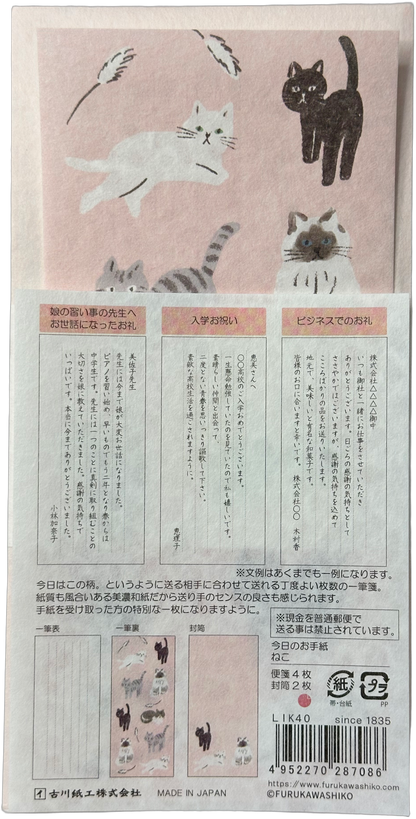 娘の習い事の先生へ
お世話になったお礼
美佐子先生
先生には今まで娘が大変お世話になりました。
ピアノを習い始め、早いものでもう二年となり春からは
中学生です。先生には一つのことに真剣に取り組むことの
大切さを娘に教えていただきました。感謝の気持ちで
いっぱいです。本当に今までありがとうございました。
小林加奈子
入学お祝い
恵美さんへ
〇〇高校のご入学おめでとうございます。
一生懸命勉強していたのを見ていたので私も嬉しいです。
素晴らしい仲間と出会って、
二度とない青春を思いっきり謳歌して下さい。
素敵な高校生活を過ごされますように。
恵理子
ビジネスでのお礼
株式会社△△△△御中
いつも御社と一緒にお仕事をさせていただき
ありがとうございます。日ごろの感謝の気持ちとして
ささやかではございますが、感謝の気持ちを込めて
こころばかりの品をお送りいたします。
地元で、美味しいと有名な和菓子です。
皆様のお口に合いますと幸いです。
株式会社〇〇 木村香
※文例はあくまでも一例になります。
今日はこの柄。というように送る相手に合わせて送れる丁度よい枚数の一筆箋。
紙質も風合いある美濃和紙だから送り手のセンスの良さも感じられます。
手紙を受け取った方の特別な一枚になりますように。
※現金を普通郵便で
送る事は禁止されています。
一筆表
一筆裏
封筒
今日のお手紙
ねこ
便箋4枚
封筒2枚
紙
帯・台紙
プラ
PP
LIK40
since 1835
4952270287086
https://www.furukawashiko.com
©FURUKAWASHIKO
古川紙工株式会社
MADE IN JAPAN